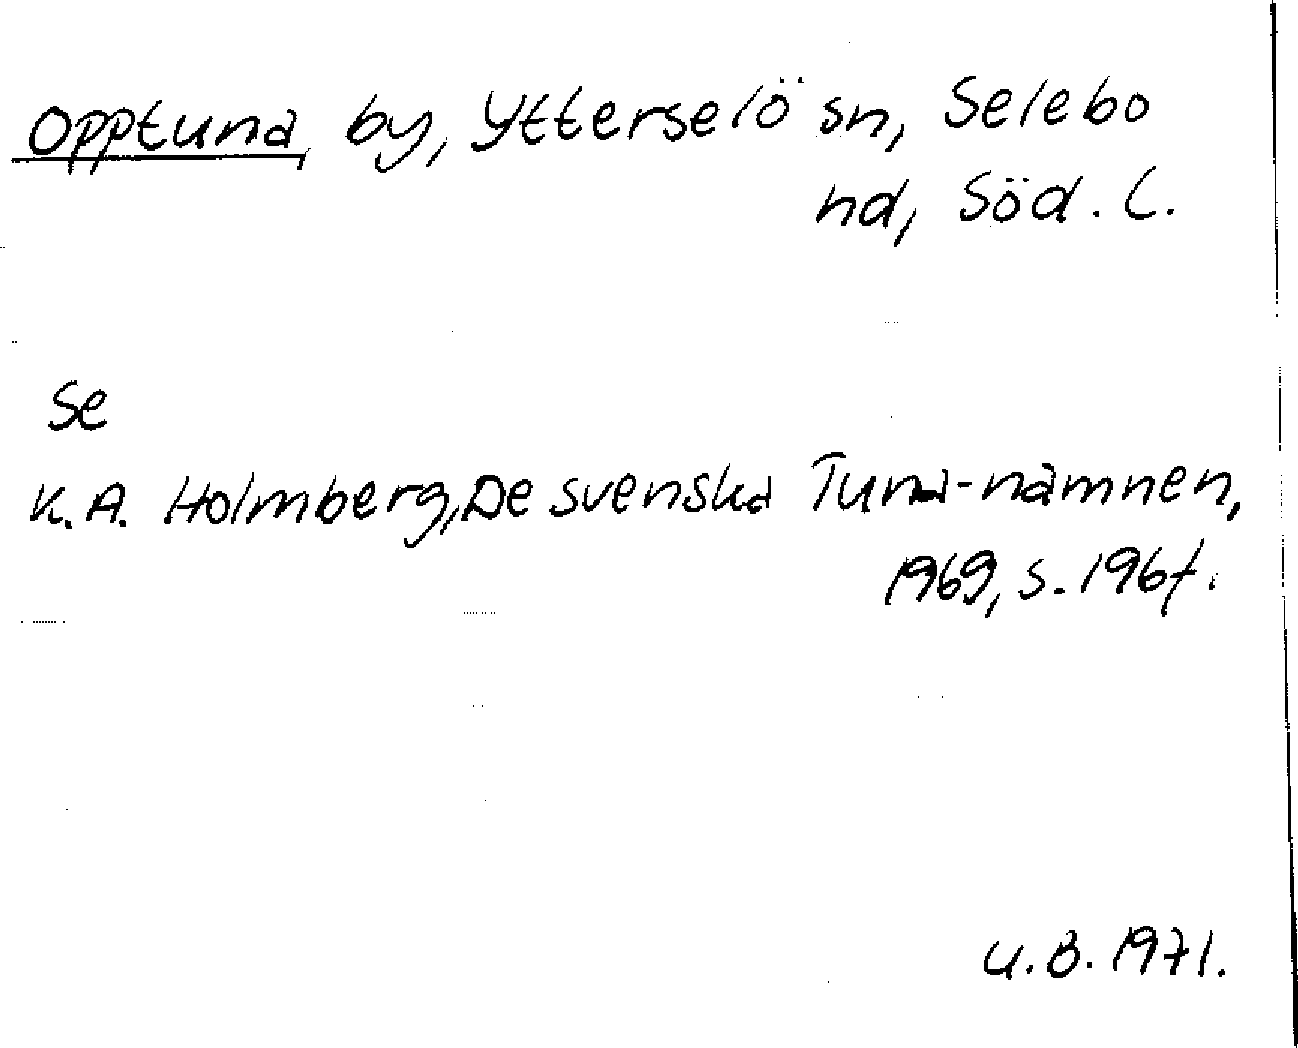 Opptuna, by, Ytterselö sn, Selebo
hd, Söd. L.
Se
K.A. Holmberg, De svenska Tuna-namnen,
1969, s. 196f.
U.B. 1971.